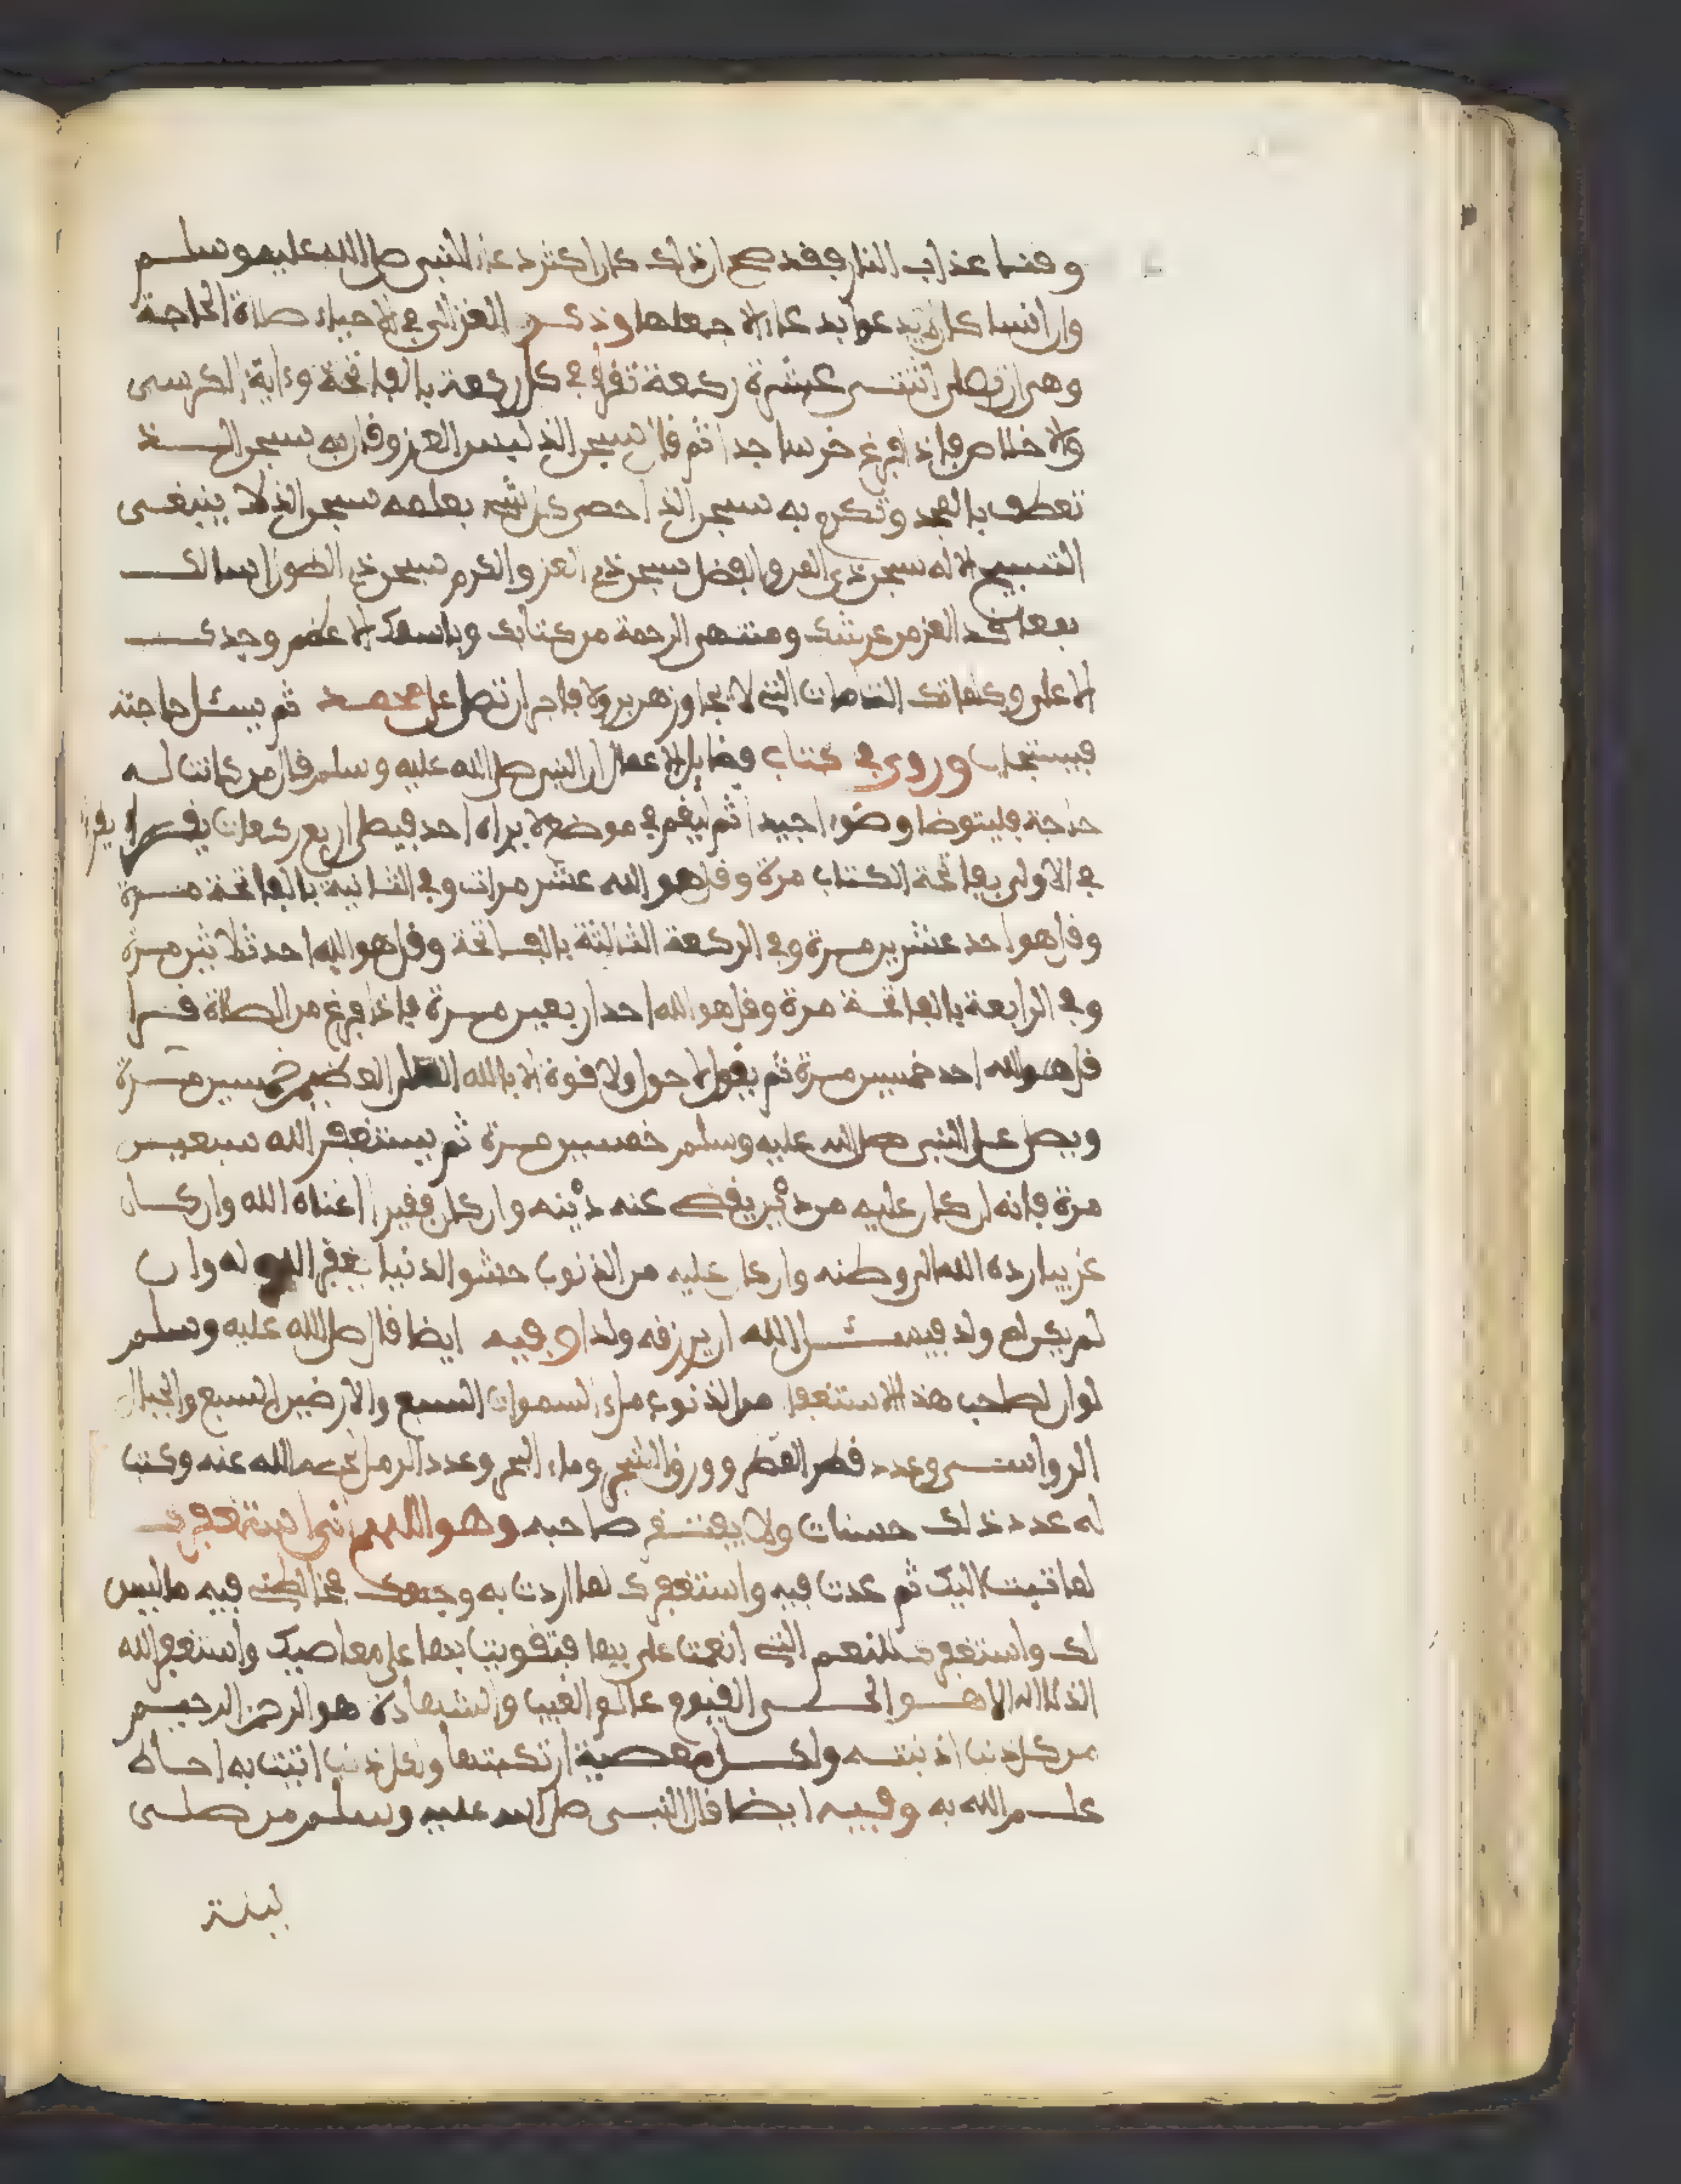 وقنا عذاب النار فقد صح ان ذلك كان اكثر دعاء النبي صلى الله عليه وسلم
وان انسا كان لا يدعوا بدعاء الا جعلها وذكر الغزالي في الاحياء صلاة الحاجة
وهي ان تصلى اثنتي عشرة ركعة تقرأ في كل ركعة بالفاتحة وءاية الكرسي
والاخلاص فاذا فرغ خر ساجدا ثم قال سبحن الذي لبس العز وقال به سبحن الذي
تعطف بالمجد وتكرم به سبحن الذي احصى كل شيء بعلمه سبحن الذي لا ينبغي
التسبيح الا له سبحن ذي المن والفضل سبحن ذي العز والكرم سبحن ذي الطول اسالك
بمعاقد العز من عرشك ومنتهى الرحمة من كتابك وباسمك الاعظم وجدك
الاعلى وكلماتك التامات التي لا يجاوزهن بر ولا فاجر ان تصلي على محمد ثم يسئل حاجته
فيستجاب وروي في كتاب فضايل الاعمال ان النبي صلى الله عليه وسلم قال من كانت له
حاجة فليتوضا وضوءا جيدا ثم ليقم في موضع لا يراه احد فيصلي اربع ركعات يقرأ
في الاولى بفاتحة الكتاب مرة وقل هو الله عشر مرات وفي الثانية بالفاتحة مرة
وقل هو احد عشرين مرة وفي الركعة الثالثة بالفاتحة وقل هو الله احد ثلاثين مرة
وفي الرابعة بالفاتحة مرة وقل هو الله احد اربعين مرة فاذا فرغ من الصلاة قرا
قل هو الله احد خمسين مرة ثم يقول لا حول ولا قوة الا بالله العلي العظيم خمسين مرة
ويصلي على النبي صلى الله عليه وسلم خمسين مرة ثم يستغفر الله سبعين
مرة فانه ان كان عليه من دين يقضى عنه دينه وان كان فقيرا اغناه الله وان كان
غريبا رده الله الى وطنه وان كان عليه من الذنوب حشو الدنيا يغفر الله له وان
لم يكن له ولد فيسئل الله ان يرزقه ولدا وفيه ايضا قال صلى الله عليه وسلم
لو ان لصاحب هذا الاستغفار من الذنوب ملء السموات السبع والارضين السبع والجبال
الرواسي وعدد قطر المطر وورق الشجر وماء البحر وعدد الرمل لمحى الله عنه وكتب
له عدد ذلك حسنات ولا يفتقر صاحبه وهو اللهم اني استغفرك
لما تبت اليك ثم عدت فيه واستغفرك لما اردت به وجهك فخالطني فيه ما ليس
لك واستغفرك للنعم التي انعمت علي بها فتقويت بها على معاصيك واستغفر الله
الذي لا اله الا هو الحي القيوم عالم الغيب والشهادة هو الرحمن الرحيم
من كل ذنب اذنبته ولكل معصية ارتكبتها ولكل ذنب اتيت به احاط
علم الله به وفيه ايضا قال النبي صلى الله عليه وسلم من صلى